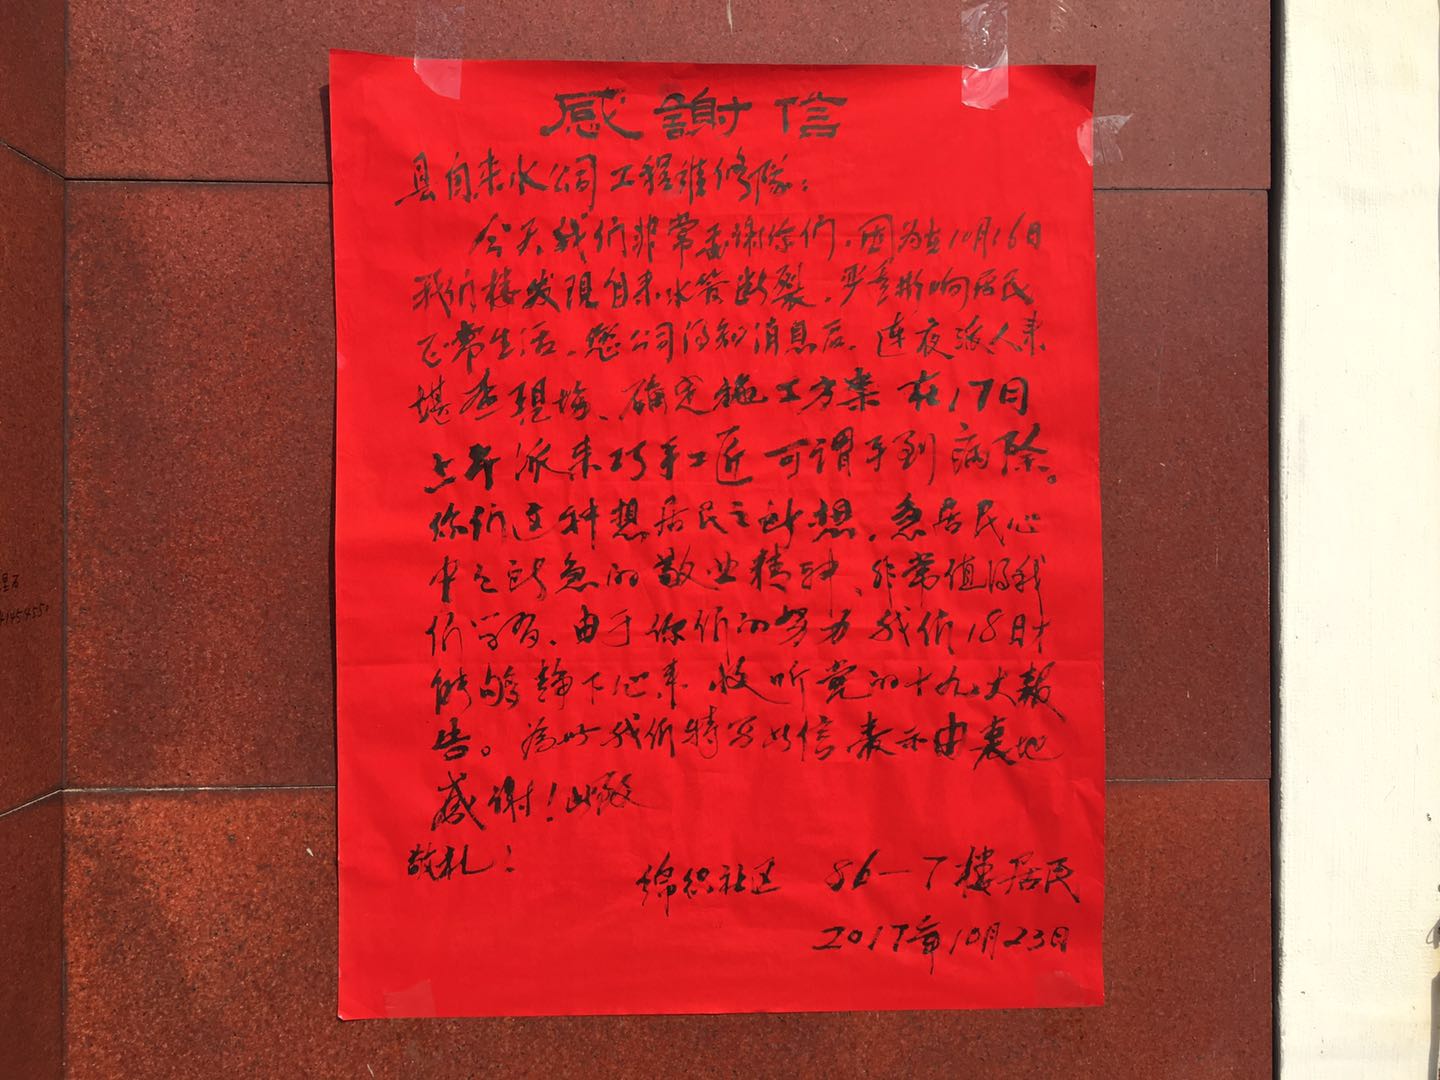 感謝信
县自来水公司工程维修队：
今天我们非常感谢你们，因为在10月16日
我们楼发现自来水管断裂，严重影响居民
正常生活，您公司得知消息后，连夜派人来
堪查現场、确定施工方案 在17日
上午派来巧手工匠 可谓手到病除。
你们这种想居民之所想，急居民心
中之所急的敬业精神、非常值得我
们学习，由于你们的努力 我们18日才
能够静下心来 收听党的十九大報
告。為此我们特写此信表示由衷地
感谢！此致
敬礼！
绵织社区 86—7楼居民
2017年10月23日